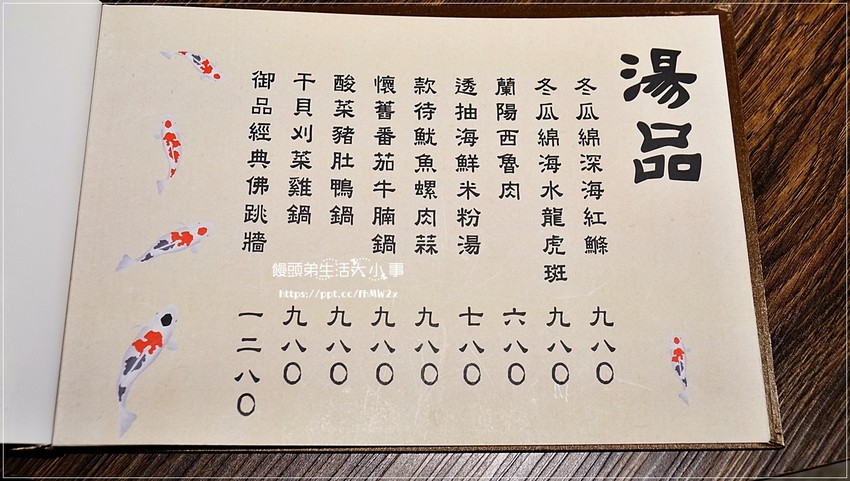 湯品
冬瓜綿深海紅鰷 九八〇
冬瓜綿海水龍虎班 九八〇
蘭陽西魯肉 六八〇
透抽海鮮米粉湯 七八〇
款待魷魚螺肉蒜 九八〇
懷舊番茄牛腩鍋 九八〇
酸菜豬肚鴨鍋 九八〇
干貝刈菜雞鍋 九八〇
御品經典佛跳牆 一二八〇
饅頭弟生活大小事
https://ppt.cc/fhMW2x